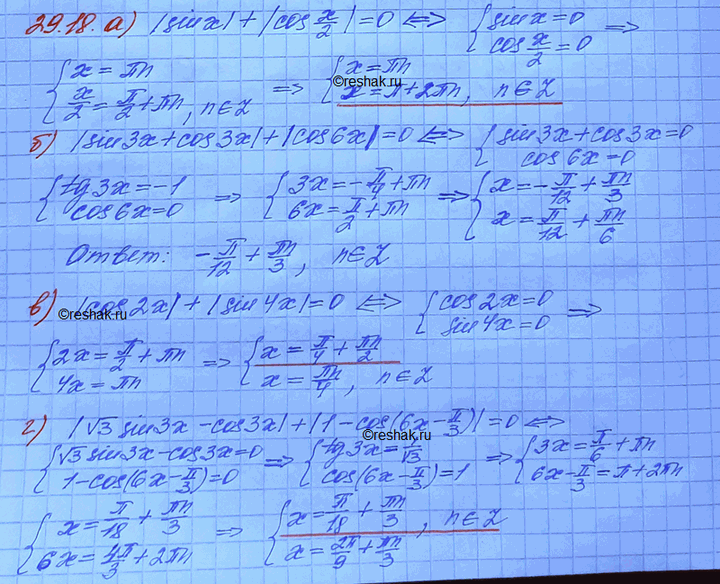 29.18. а) |sin x| + |cos x/2| = 0 ⟺ { sin x = 0; cos x/2 = 0 ⟹
{ x = πn; x/2 = π/2 + πn, n∈Z ⟹ { x = πn; x = π + 2πn, n∈Z
©reshak.ru
б) |sin 3x + cos 3x| + |cos 6x| = 0 ⟺ { sin 3x + cos 3x = 0; cos 6x = 0
{ tg 3x = -1; cos 6x = 0 ⟹ { 3x = -π/4 + πn; 6x = π/2 + πn ⟹ { x = -π/12 + πn/3; x = π/12 + πn/6
Ответ: -π/12 + πn/3, n∈Z
в) |cos 2x| + |sin 4x| = 0 ⟺ { cos 2x = 0; sin 4x = 0 ⟹
©reshak.ru
{ 2x = π/2 + πn; 4x = πn ⟹ { x = π/4 + πn/2; x = πn/4, n∈Z
г) |√3 sin 3x - cos 3x| + |1 - cos(6x - π/3)| = 0 ⟺
©reshak.ru
{ √3 sin 3x - cos 3x = 0; 1 - cos(6x - π/3) = 0 ⟹ { tg 3x = 1/√3; cos(6x - π/3) = 1 ⟹ { 3x = π/6 + πn; 6x - π/3 = π + 2πn
{ x = π/18 + πn/3; 6x = 4π/3 + 2πn ⟹ { x = π/18 + πn/3; x = 2π/9 + πn/3, n∈Z